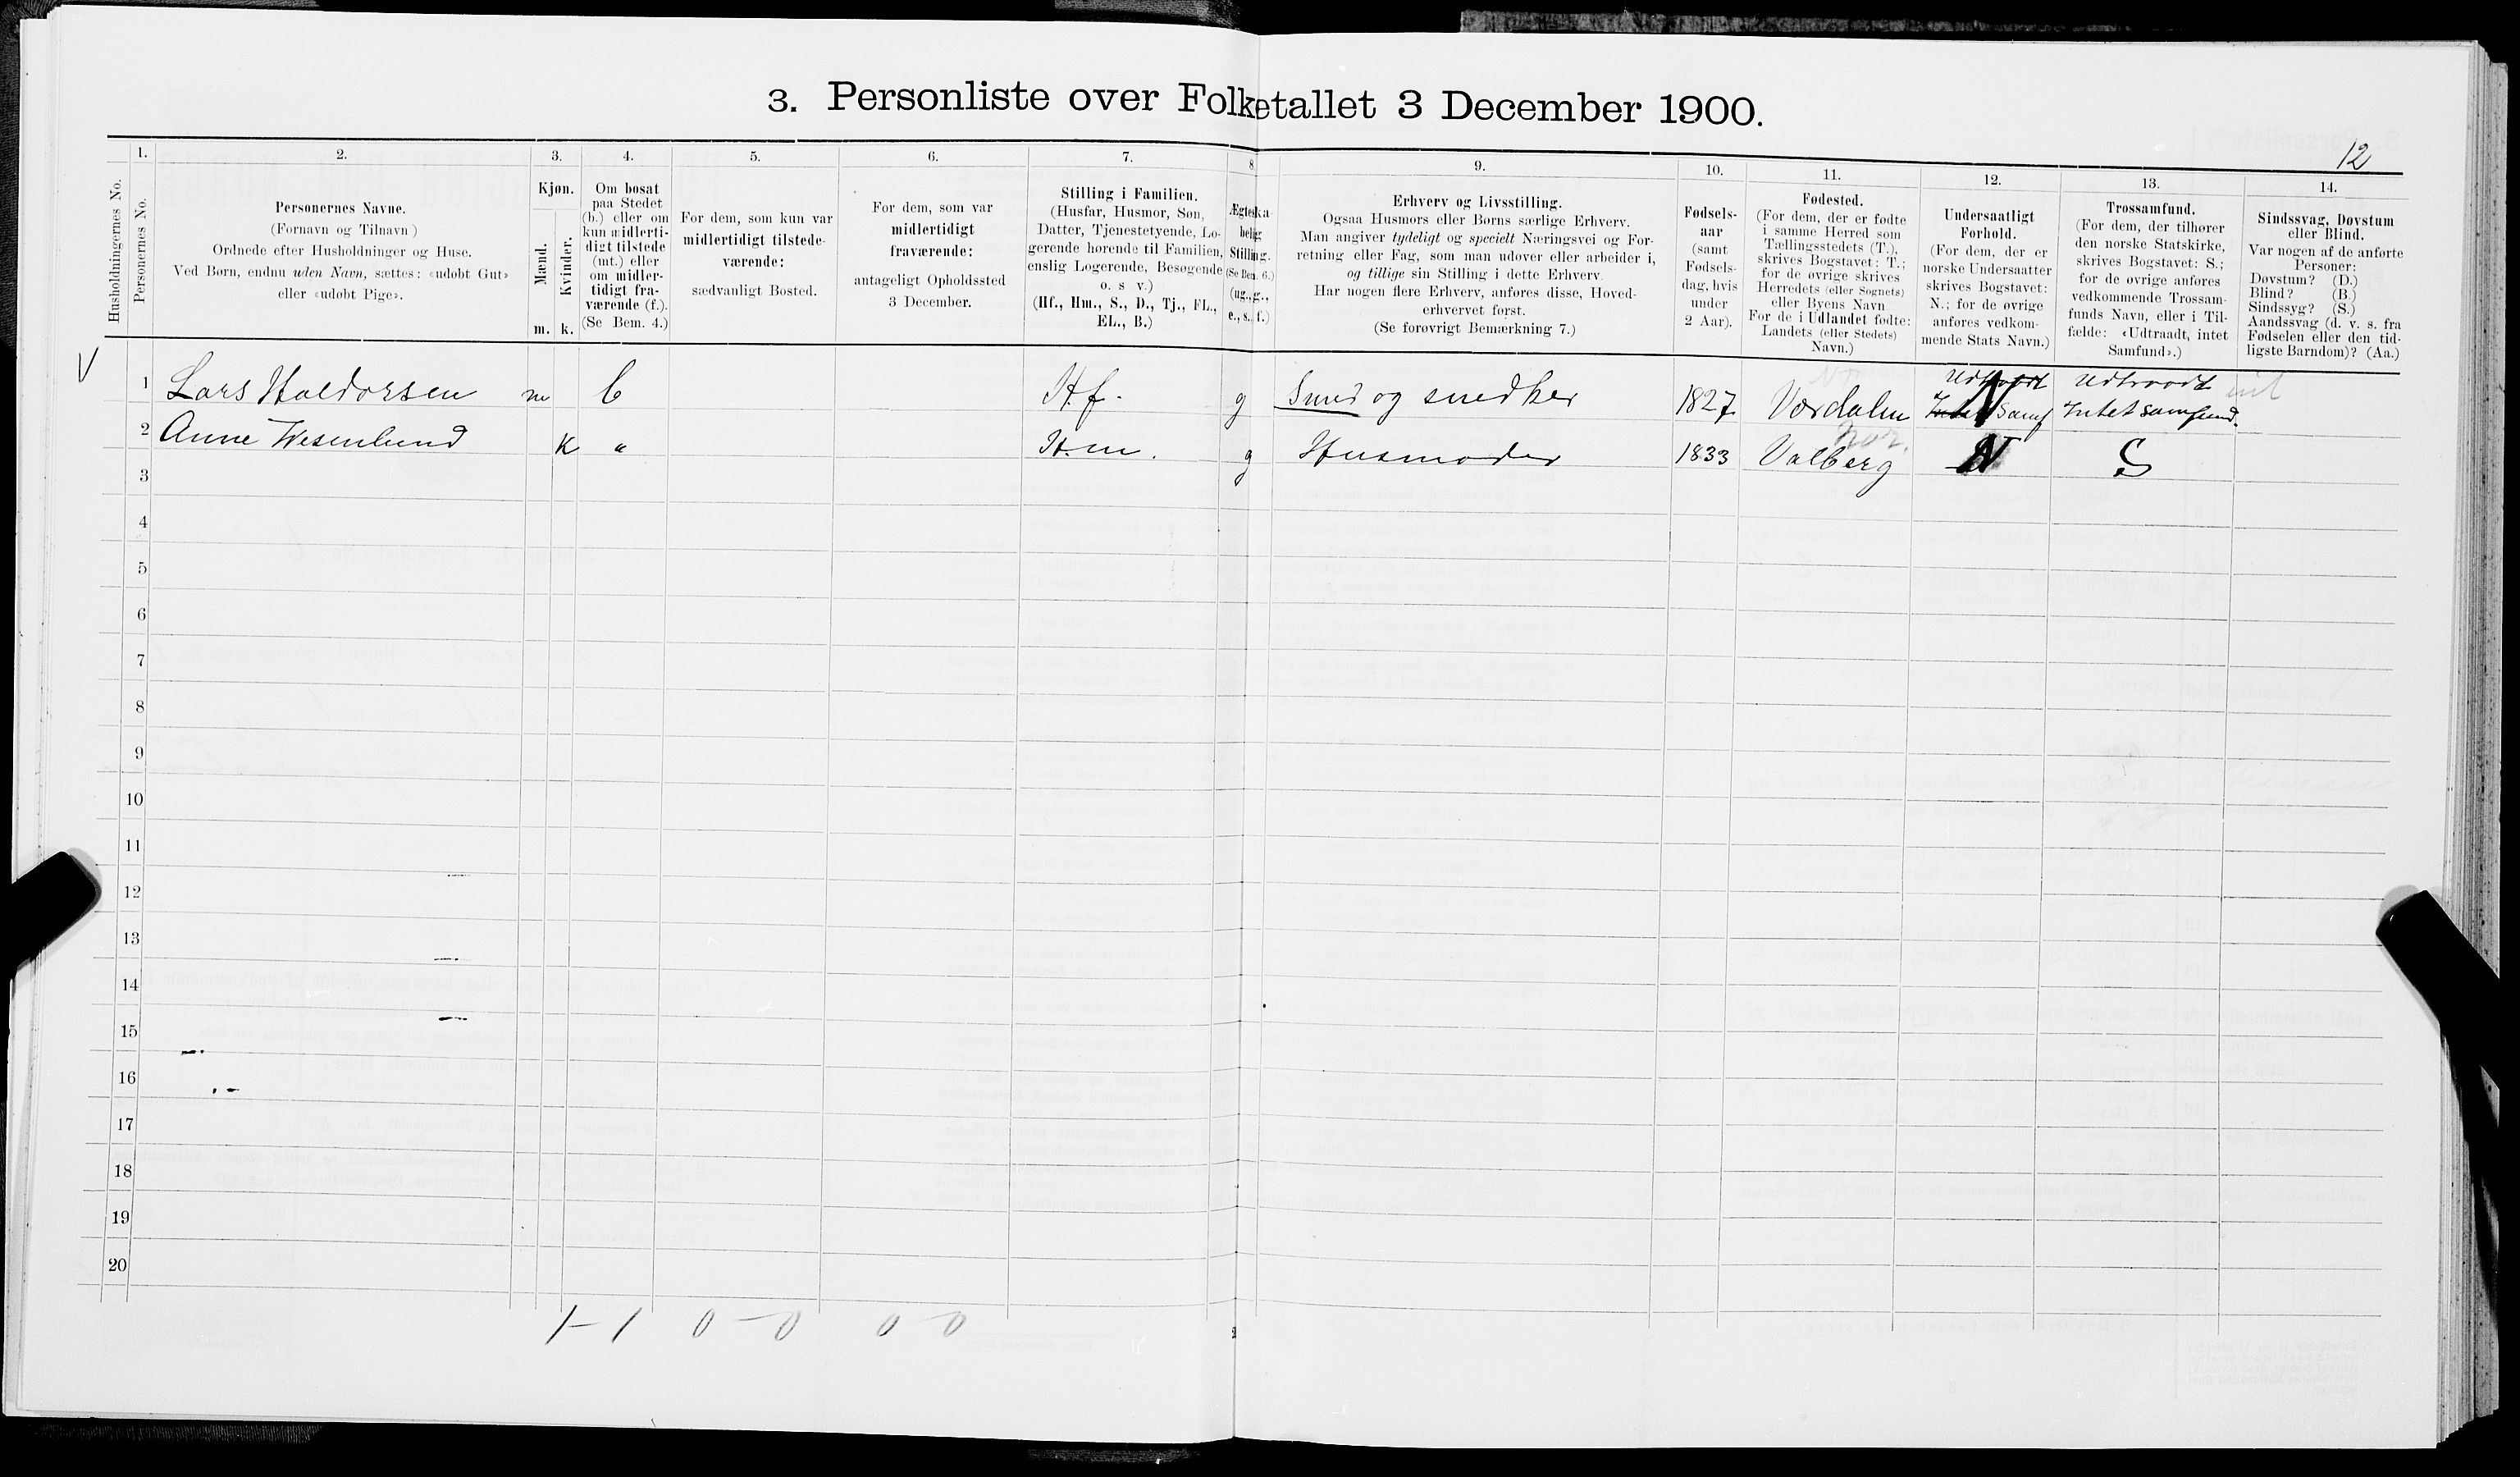 3. Personliste over Folketallet 3 December 1900.
12
Husholdningernes No.
1.
Personernes No.
2.
Personernes Navne.
(Fornavn og Tilnavn)
Ordnede efter Husholdninger og Huse.
Ved Børn, endnu uden Navn, sættes: «udøbt Gut»
eller «udøbt Pige».
3.
Kjøn.
Mænd.
Kvinder.
m. k.
4.
Om bosat
paa Stedet
(b.) eller om
kun midlerti-
digt tilstede
(mt.) eller
om midler-
tidigt fra-
værende (f.).
(Se Bem. 4.)
5.
For dem, som kun var
midlertidigt tilstede-
værende:
sædvanligt Bosted.
6.
For dem, som var
midlertidigt
fraværende:
antageligt Opholdssted
3 December.
7.
Stilling i Familien.
(Husfar, Husmor, Søn,
Datter, Tjenestetyende, Lo-
gerende hørende til Familien,
enslig Logerende, Besøgende
o. s v.)
(Hf., Hm., S., D., Tj., FL.,
EL., B.)
8
Ægteska-
belig
Stilling.
(Se Bem. 6.)
(ug., g.,
e., s., f.)
9.
Erhverv og Livsstilling.
Ogsaa Husmors eller Børns særlige Erhverv.
Man angiver tydeligt og specielt Næringsvei og For-
retning eller Fag, som man udøver eller arbeider i,
og tillige sin Stilling i dette Erhverv.
Har nogen flere Erhverv, anføres disse, Hoved-
erhvervet først.
(Se forøvrigt Bemærkning 7.)
10.
Fødsels-
aar
(samt
Fødsels-
dag, hvis
under
2 Aar).
11.
Fødested.
(For dem, der er fødte
i samme Herred som
Tællingsstedets (T.),
skrives Bogstavet: T.;
for de øvrige skrives
Herredets (eller Sognets)
eller Byens Navn
For de i Udlandet fødte:
Landets (eller Stedets)
Navn.)
12.
Undersaatligt
Forhold.
(For dem, der er
norske Undersaatter
skrives Bogstavet:
N.; for de øvrige
anføres vedkom-
mende Stats Navn.)
13.
Trossamfund.
(For dem, der tilhører
den norske Statskirke,
skrives Bogstavet: S.;
for de øvrige anføres
vedkommende Trossam-
funds Navn, eller i Til-
fælde: «Udtraadt, intet
Samfund».)
14.
Sindssvag, Døvstum
eller Blind.
Var nogen af de anførte
Personer:
Døvstum? (D.)
Blind? (B.)
Sindssyg? (S.)
Aandssvag (d. v. s. fra
Fødselen eller den tid-
ligste Barndom)? (Aa.)
V
1 Lars Haldorsen m b Hf. g Smed og snedker 1827 Værdalen Udtraadt Intet Samf N Udtraadt Intet samfund.
2 Anne Wesenlund K " H.m. g Husmoder 1833 Valberg N S
3
4
5
6
7
8
9
10
11
12
13
14
15
16
17
18
19
20
1-1 0-0 0 0